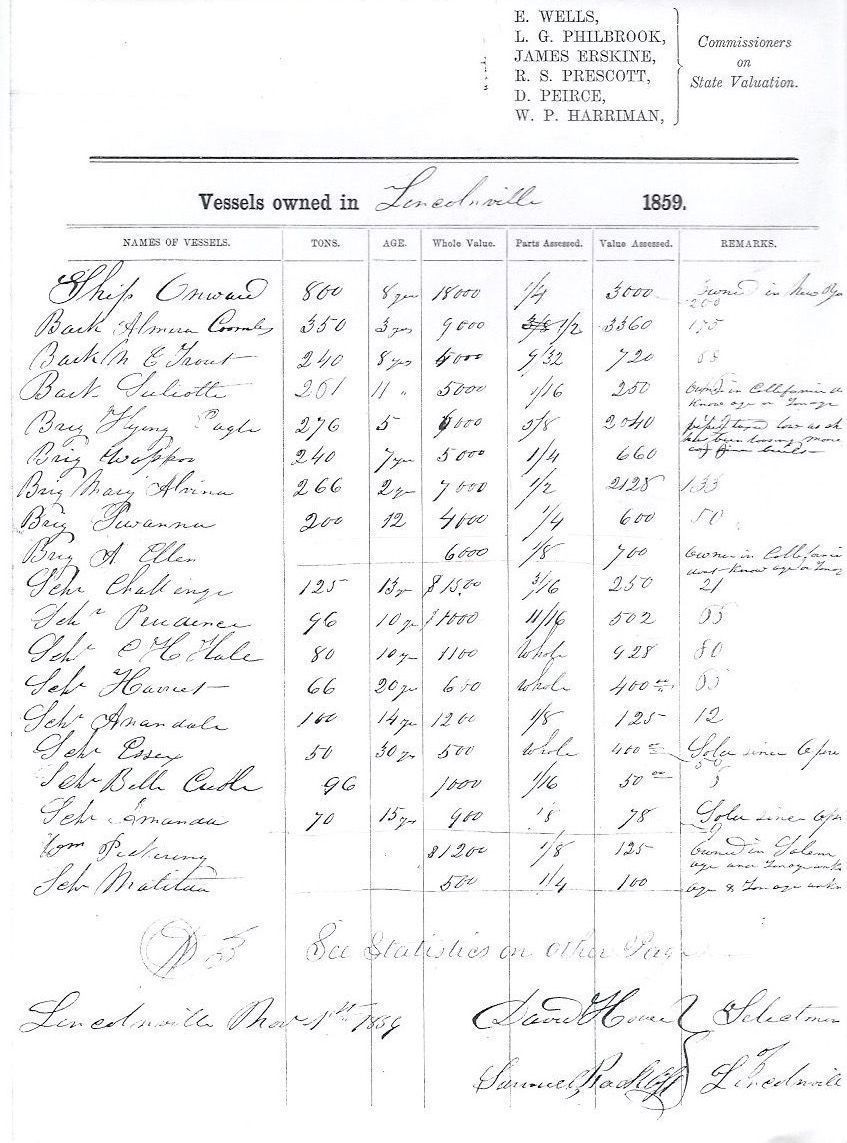 E. WELLS,
L. G. PHILBROOK,
JAMES ERSKINE,
R. S. PRESCOTT,
D. PEIRCE,
W. P. HARRIMAN,
Commissioners
on
State Valuation.
Vessels owned in Lincolnville 1859.
NAMES OF VESSELS. TONS. AGE. Whole Value. Parts Assessed. Value Assessed. REMARKS.
Ship Onward 800 8 yrs 18000 1/4 3000 owned in New
200
Bark Almira Coombs 350 3 yrs 9000 3/8 1/2 3360 175
Bark M E Trout 240 8 yrs 9/32 720 68
Bark Suliotte 261 11 " 5000 1/16 250 Owned in California
know age or Tonage
Brig Flying Eagle 276 5 6000 3/8 2040 low as
has been loosing money
Brig 240 7 yrs 5000 1/4 660
Brig Mary Alvina 266 2 yr 7000 1/2 2128 133
Brig Swanna 200 12 4000 1/4 600 50
Brig A Ellen 6000 1/8 700 Owned in California
dont know age or Tonag
Schr Challenge 125 13 yr $1500 3/16 250 21
Schr Prudence 96 10 yr 1000 11/16 502 65
Schr E H Hale 80 10 yr 1100 Whole 928 80
Schr Harriet 66 20 yr 600 Whole 400 65
Schr Anandale 100 14 yr 1200 1/8 125 12
Schr Essex 50 30 yr 500 Whole 400 Sold since
50
Schr Belle Creole 96 1000 1/16 50
Schr Amanda 70 15 yrs 900 1/8 78 Sold since
Wm Pickering $1200 1/8 125 Owned in Salem
age and Tonage
Schr Matilda 500 1/4 100 age & Tonage
See Statistics on other Page
Lincolnville Nov 1st 1859
David Howe Selectmen
of
Samuel Rackliff Lincolnvill